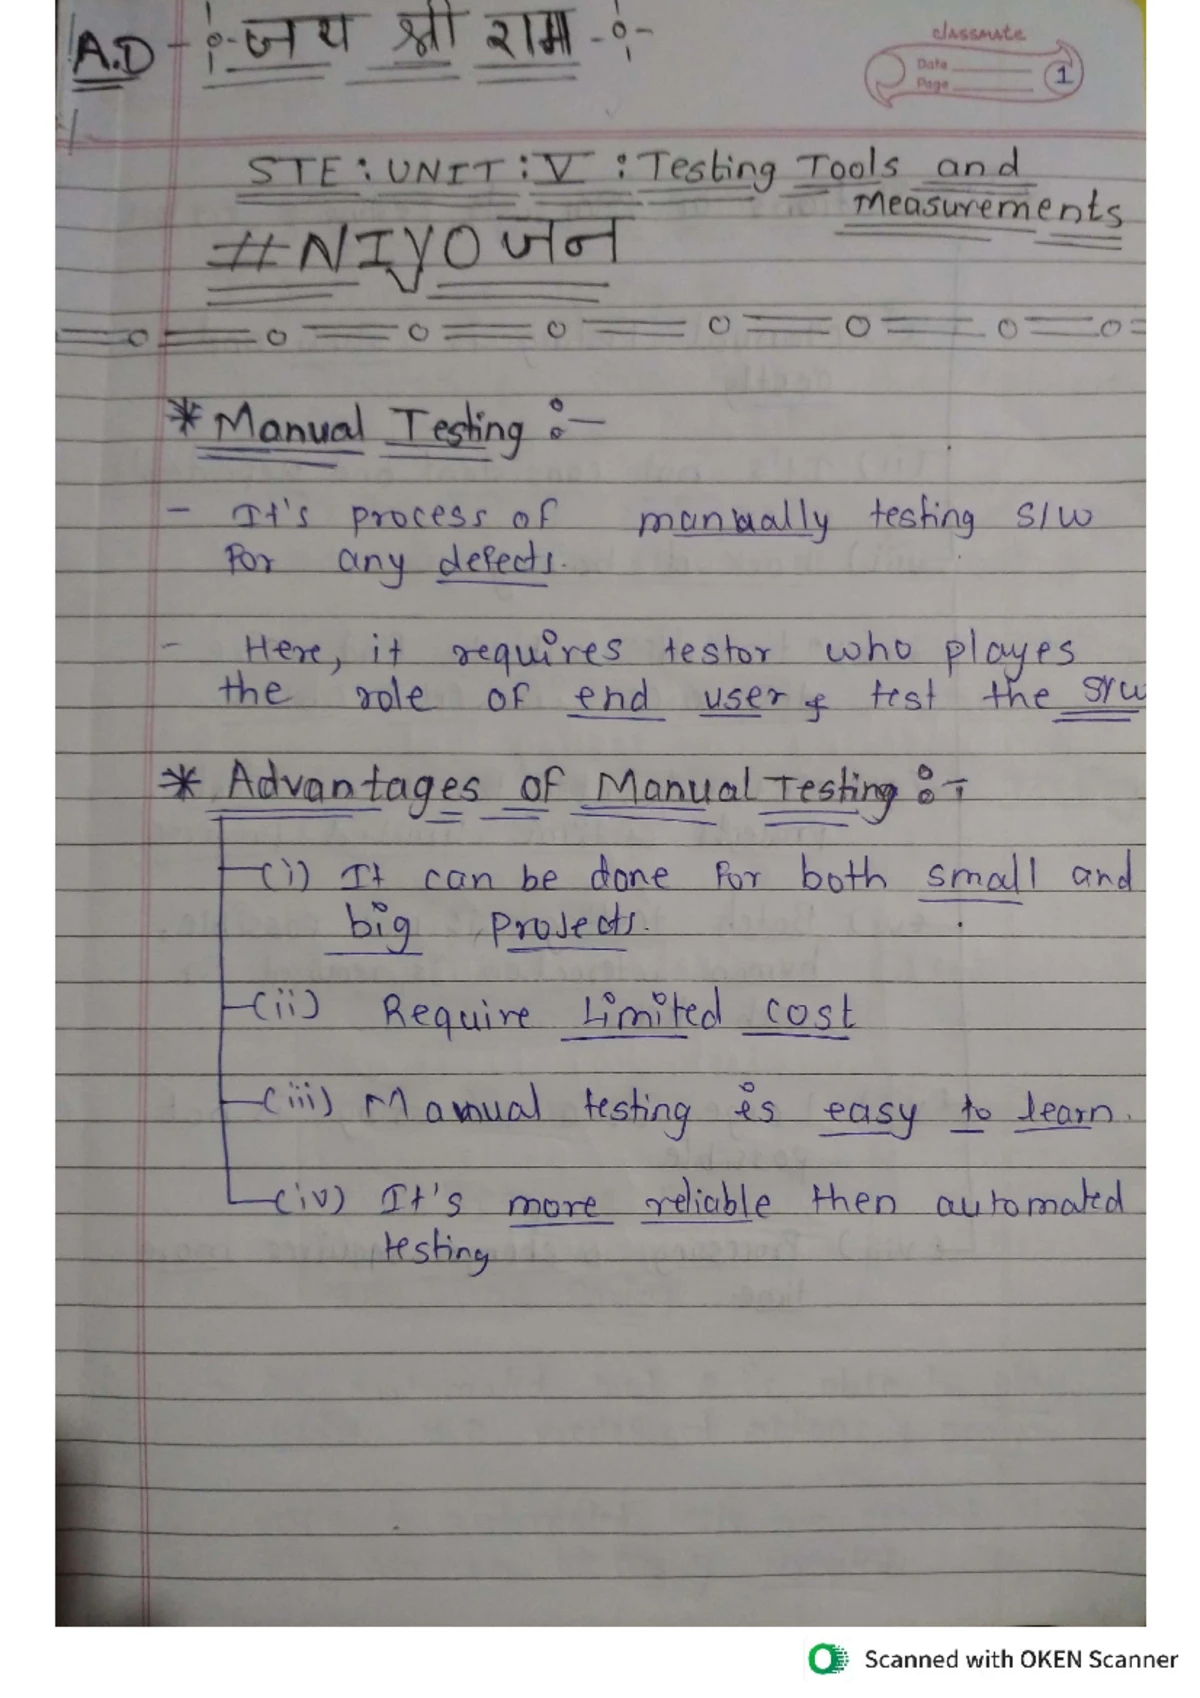 A.D -:- जय श्री राम -:-
classmate
Date
Page
1
STE : UNIT : V : Testing Tools and
Measurements
#NIYOजन
* Manual Testing :-
- It's process of manually testing S/W
for any defects.
- Here, it requires testor who playes
the role of end user & test the S/W
* Advantages of Manual Testing :-
(i) It can be done for both small and
big projects.
(ii) Require Limited cost
(iii) Manual testing is easy to learn.
(iv) It's more reliable then automated
testing
Scanned with OKEN Scanner